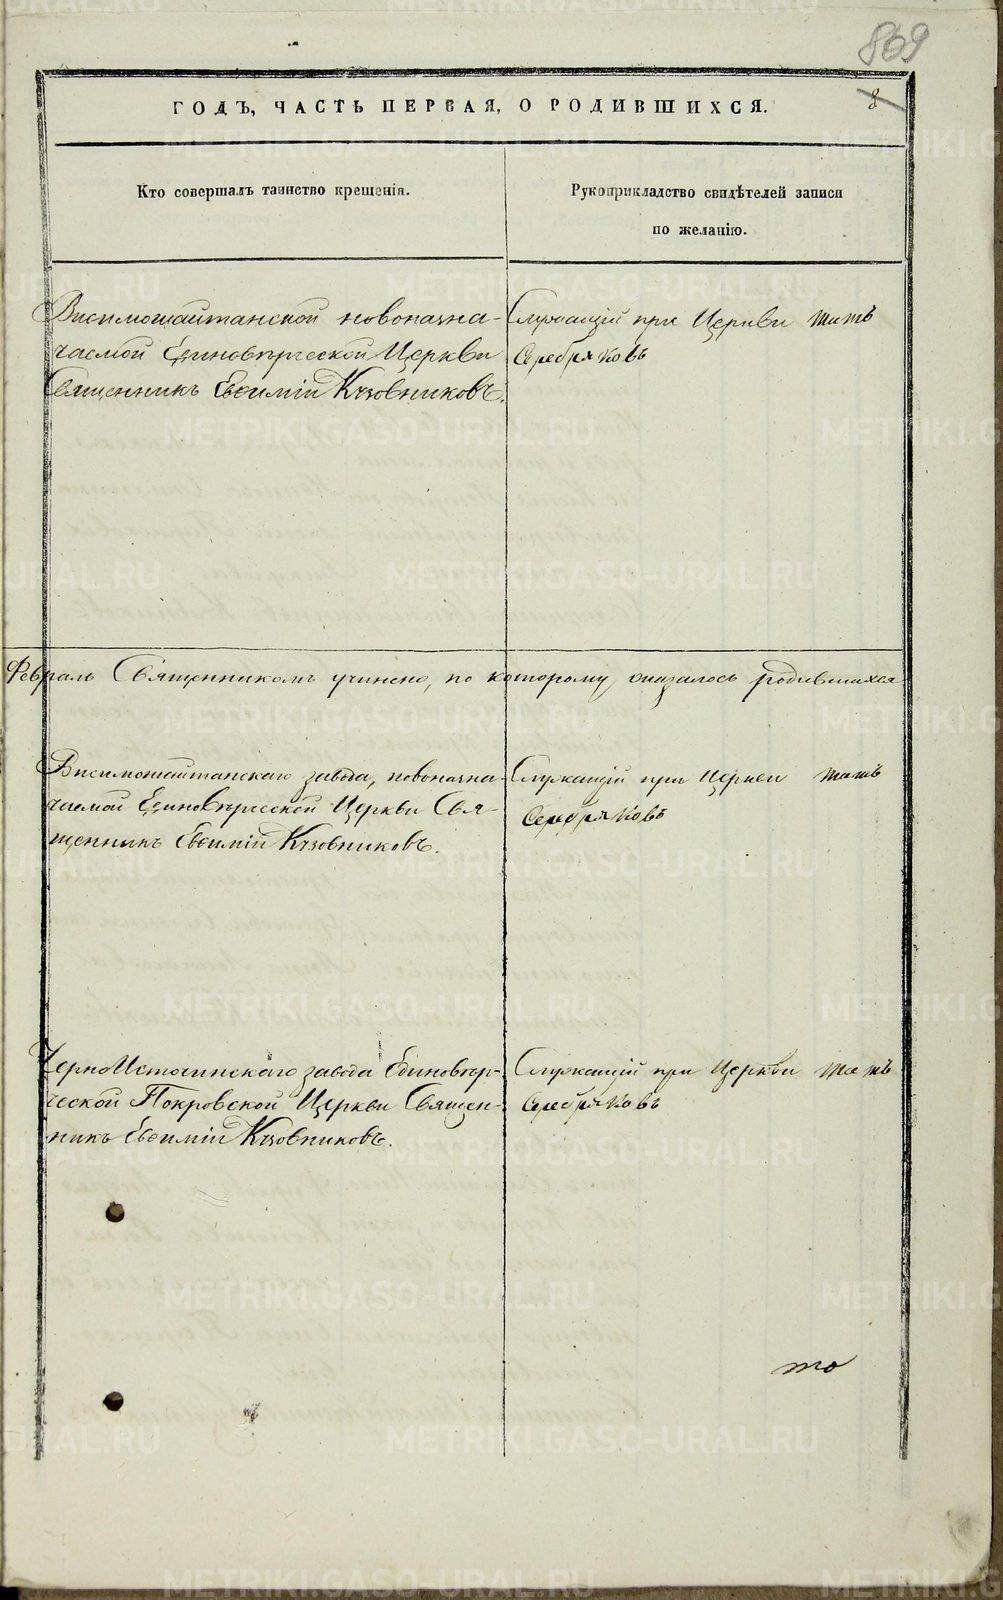 869
8
ГОДЪ, ЧАСТЬ ПЕРВАЯ, О РОДИВШИХСЯ.
Кто совершалъ таинство крещенія.
Рукоприкладство свидѣтелей записи
по желанію.
Висимошайтанской новоназна-
чаемой Единовѣрческой Церкви
Священникъ Евѳимій Кузовниковъ.
Служащій при Церкви
Серебряковъ
Февраль Священникомъ учинено, по которому оказалось родившихся
Висимошайтанскаго завода, новоназна-
чаемой Единовѣрческой Церкви Свя-
щенникъ Евѳимій Кузовниковъ.
Служащій при Церкви
Серебряковъ
ЧерноИсточинскаго завода Единовѣр-
ческой Покровской Церкви Священ-
никъ Евѳимій Кузовниковъ.
Служащій при Церкви
Серебряковъ
то
METRIKI.GASO-URAL.RU